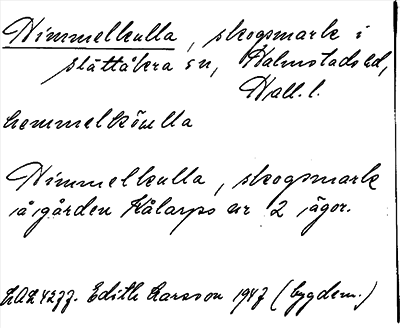 Himmelkulla, skogsmark i
Slättåkra sn, Halmstads hd,
Hall. l.
hemmelkölla
Himmelkulla, skogsmark
å gården Kålarps nr 2 ägor.
Edith Larsson 1947 (bygdem.)